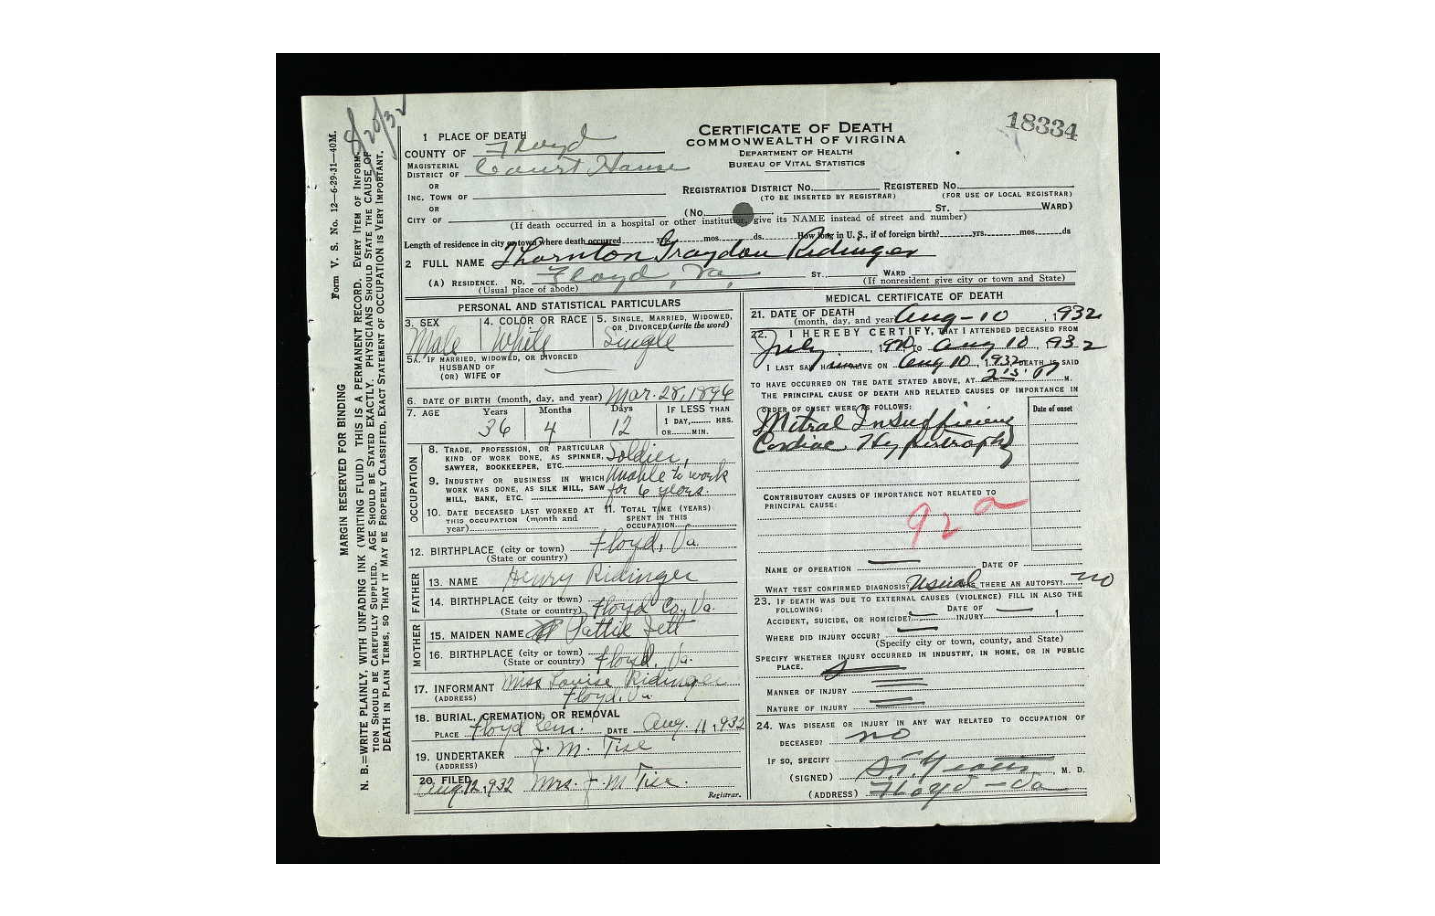 8/20/32
Form V. S. No. 12—6-29-31—40M.
MARGIN RESERVED FOR BINDING
N. B.—WRITE PLAINLY, WITH UNFADING INK (WRITING FLUID) THIS IS A PERMANENT RECORD. EVERY ITEM OF INFORMATION SHOULD BE CAREFULLY SUPPLIED. AGE SHOULD BE STATED EXACTLY. PHYSICIANS SHOULD STATE THE CAUSE OF
DEATH IN PLAIN TERMS, SO THAT IT MAY BE PROPERLY CLASSIFIED, EXACT STATEMENT OF OCCUPATION IS VERY IMPORTANT.
CERTIFICATE OF DEATH
COMMONWEALTH OF VIRGINA
DEPARTMENT OF HEALTH
BUREAU OF VITAL STATISTICS
18334
1 PLACE OF DEATH
COUNTY OF Floyd
MAGISTERIAL
DISTRICT OF Court House
OR
INC. TOWN OF
OR
CITY OF
REGISTRATION DISTRICT NO. REGISTERED NO.
(TO BE INSERTED BY REGISTRAR) (FOR USE OF LOCAL REGISTRAR)
(NO. ST. WARD)
(If death occurred in a hospital or other institution, give its NAME instead of street and number)
Length of residence in city or town where death occurred yrs. mos. ds. How long in U. S., if of foreign birth? yrs. mos. ds
2 FULL NAME Thornton Graydon Ridinger
(A) RESIDENCE. NO. Floyd, Va. ST. WARD
(Usual place of abode) (If nonresident give city or town and State)
PERSONAL AND STATISTICAL PARTICULARS
3. SEX Male
4. COLOR OR RACE White
5. SINGLE, MARRIED, WIDOWED, OR DIVORCED (write the word) Single
5A. IF MARRIED, WIDOWED, OR DIVORCED
HUSBAND OF
(OR) WIFE OF
6. DATE OF BIRTH (month, day, and year) Mar. 28, 1896
7. AGE Years Months Days IF LESS THAN
36 4 12 1 DAY, HRS.
OR MIN.
OCCUPATION
8. TRADE, PROFESSION, OR PARTICULAR
KIND OF WORK DONE, AS SPINNER,
SAWYER, BOOKKEEPER, ETC. Soldier,
9. INDUSTRY OR BUSINESS IN WHICH
WORK WAS DONE, AS SILK MILL, SAW
MILL, BANK, ETC. Unable to work
for 6 years.
10. DATE DECEASED LAST WORKED AT
THIS OCCUPATION (month and
year)
11. TOTAL TIME (YEARS)
SPENT IN THIS
OCCUPATION
12. BIRTHPLACE (city or town) Floyd, Va.
(State or country)
FATHER
13. NAME Henry Ridinger
14. BIRTHPLACE (city or town)
(State or country) Floyd Co., Va.
MOTHER
15. MAIDEN NAME Pattie Jett
16. BIRTHPLACE (city or town)
(State or country) Floyd, Va.
17. INFORMANT Miss Louise Ridinger
(ADDRESS) Floyd, Va
18. BURIAL, CREMATION, OR REMOVAL
PLACE Floyd Cem. DATE Aug. 11, 1932
19. UNDERTAKER J. M. Tise
(ADDRESS)
20. FILED Aug 12, 1932 Mrs. J. M Tise.
Registrar.
MEDICAL CERTIFICATE OF DEATH
21. DATE OF DEATH
(month, day, and year) Aug - 10, 1932
22. I HEREBY CERTIFY, THAT I ATTENDED DECEASED FROM
July, 1920 TO Aug 10, 1932
I LAST SAW him ALIVE ON Aug 10, 1932 DEATH IS SAID
TO HAVE OCCURRED ON THE DATE STATED ABOVE, AT M.
THE PRINCIPAL CAUSE OF DEATH AND RELATED CAUSES OF IMPORTANCE IN
ORDER OF ONSET WERE AS FOLLOWS: Date of onset
Mitral Insufficiency
Cardiac Hypertrophy
CONTRIBUTORY CAUSES OF IMPORTANCE NOT RELATED TO
PRINCIPAL CAUSE:
92a
NAME OF OPERATION DATE OF
WHAT TEST CONFIRMED DIAGNOSIS? Usual WAS THERE AN AUTOPSY? no
23. IF DEATH WAS DUE TO EXTERNAL CAUSES (VIOLENCE) FILL IN ALSO THE
FOLLOWING:
ACCIDENT, SUICIDE, OR HOMICIDE? DATE OF INJURY 1
WHERE DID INJURY OCCUR?
(Specify city or town, county, and State)
SPECIFY WHETHER INJURY OCCURRED IN INDUSTRY, IN HOME, OR IN PUBLIC
PLACE.
MANNER OF INJURY
NATURE OF INJURY
24. WAS DISEASE OR INJURY IN ANY WAY RELATED TO OCCUPATION OF
DECEASED? no
IF SO, SPECIFY
(SIGNED) M. D.
(ADDRESS) Floyd - Va